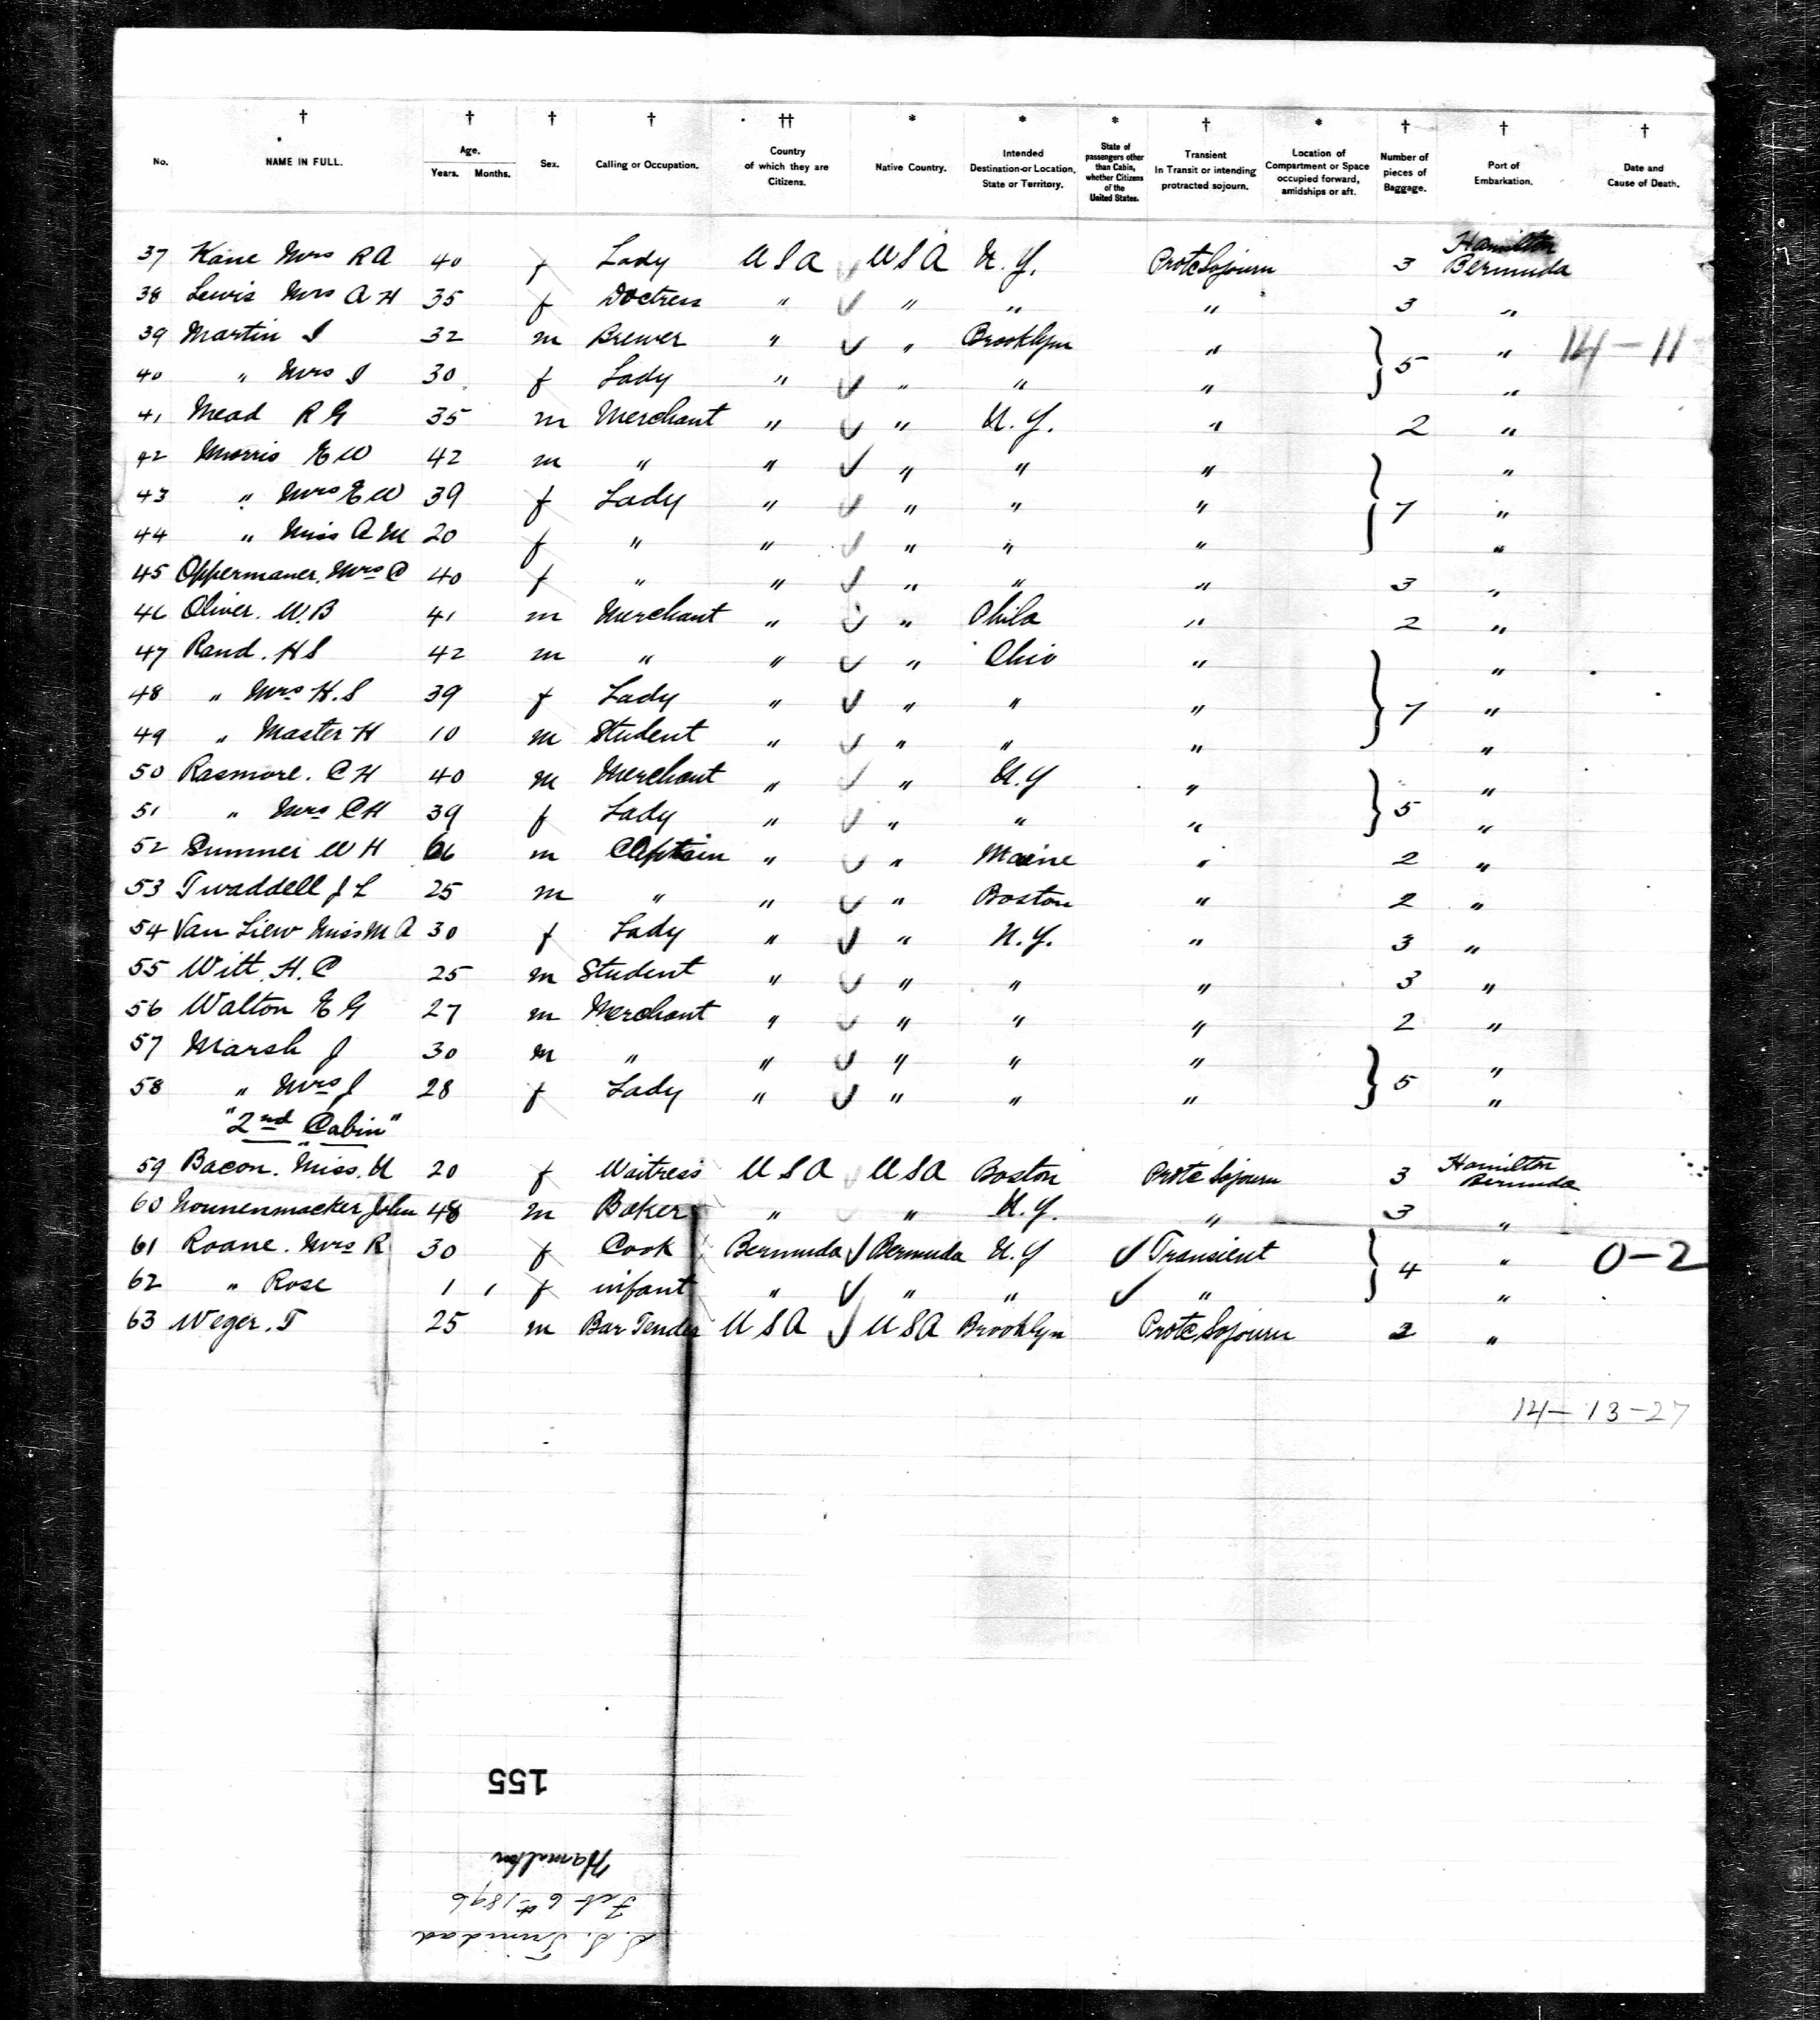 † † † † †† * * * † * † † †
No. NAME IN FULL. Age. Years. Months. Sex. Calling or Occupation. Country of which they are Citizens. Native Country. Intended Destination or Location, State or Territory. State of passengers other than Cabin, whether Citizens of the United States. Transient In Transit or intending protracted sojourn. Location of Compartment or Space occupied forward, amidships or aft. Number of pieces of Baggage. Port of Embarkation. Date and Cause of Death.
37 Kane Mrs R A 40 f Lady U S A ✓ U S A N. Y. Prote Sojourn 3 Hamilton Bermuda
38 Lewis Mrs A H 35 f Doctress " ✓ " " " 3 "
39 Martin I 32 m Brewer " ✓ " Brooklyn " } 5 " 14-11
40 " Mrs I 30 f Lady " ✓ " " " "
41 Mead R G 35 m Merchant " ✓ " N. Y. " 2 "
42 Morris E W 42 m " " ✓ " " " } 7 "
43 " Mrs E W 39 f Lady " ✓ " " " "
44 " Miss A M 20 f " " ✓ " " " "
45 Oppermaner, Mrs C 40 f " " ✓ " " " 3 "
46 Oliver. W. B 41 m Merchant " ✓ " Phila " 2 "
47 Rand. H S 42 m " " ✓ " Ohio " } "
48 " Mrs H. S 39 f Lady " ✓ " " " 7 "
49 " Master H 10 m Student " ✓ " " " "
50 Rasmore. C H 40 m Merchant " ✓ " N. Y " } 5 "
51 " Mrs C H 39 f Lady " ✓ " " " "
52 Sumner W H 66 m Captain " ✓ " Maine " 2 "
53 Twaddell J L 25 m " " ✓ " Boston " 2 "
54 Van Liew Miss M A 30 f Lady " ✓ " N. Y. " 3 "
55 Witt. H. C 25 m Student " ✓ " " " 3 "
56 Walton E G 27 m Merchant " ✓ " " " 2 "
57 Marsh J 30 m " " ✓ " " " } 5 "
58 " Mrs J 28 f Lady " ✓ " " " "
"2nd Cabin"
59 Bacon. Miss. 20 f Waitress U S A ✓ U S A Boston Prote Sojourn 3 Hamilton Bermuda
60 Nonnenmacker John 48 m Baker " ✓ " N. Y. " 3 "
61 Roane. Mrs R 30 f Cook Bermuda ✓ Bermuda N. Y ✓ Transient } 4 " 0-2
62 " Rose 1 1 f infant " ✓ " " ✓ " "
63 Weger. T 25 m Bar Tender U S A ✓ U S A Brooklyn Prote Sojourn 2 "
14-13-27
155
Hamilton
Feb 6th 1896
S. S. Trinidad